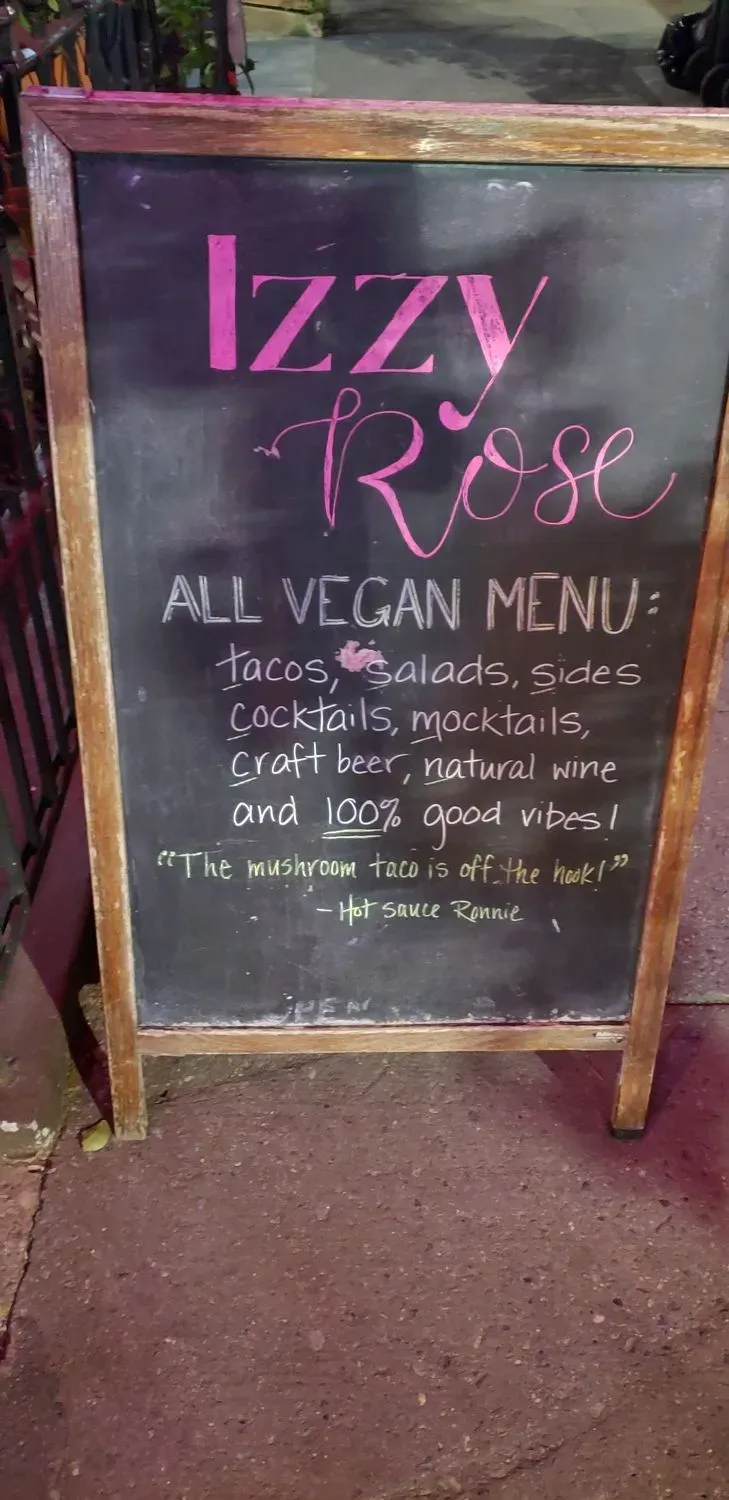 Izzy
Rose
ALL VEGAN MENU:
tacos, salads, sides
cocktails, mocktails,
craft beer, natural wine
and 100% good vibes!
"The mushroom taco is off the hook!"
- Hot Sauce Ronnie